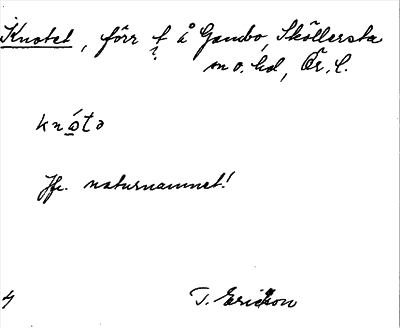 Knotet, förr t å Gambo, Sköllersta
sn o. hd, Ör. l.
knót̲ə
Jfr. naturnamnet!
4 T. Ericsson